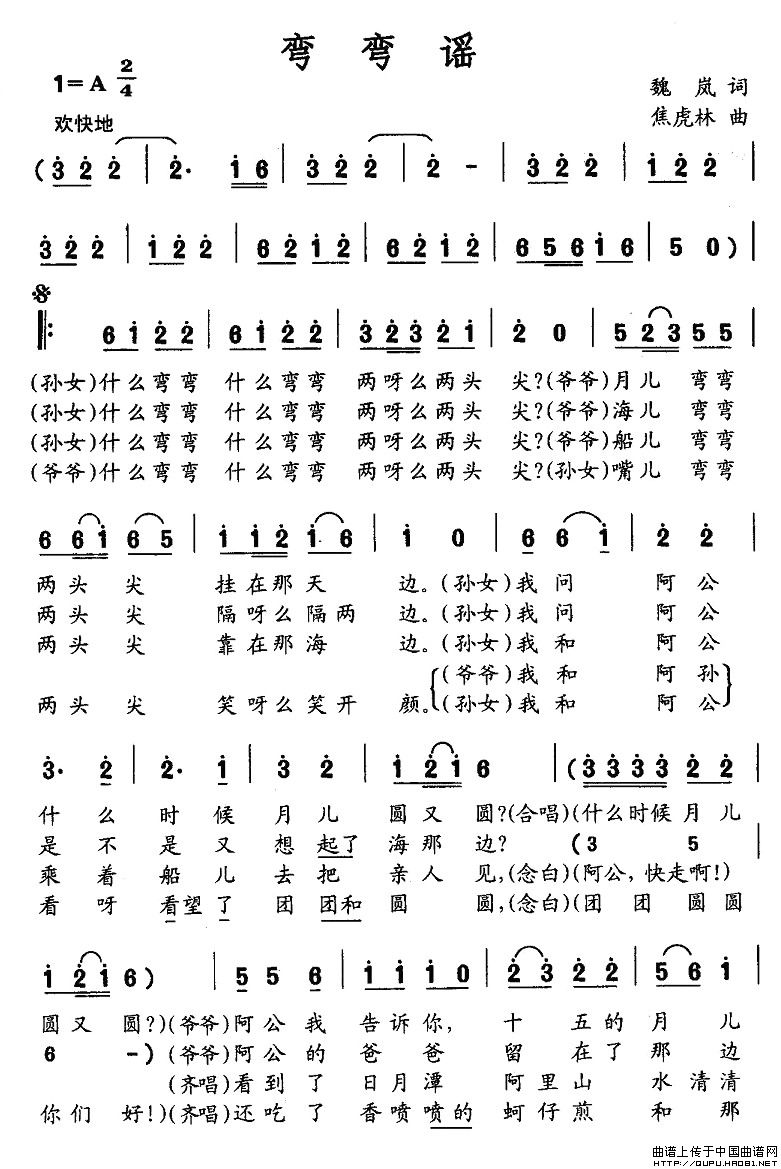 弯弯谣
1=A 2/4
魏岚 词
欢快地
焦虎林 曲
(3 2 2 | 2· 1 6 | 3 2 2 | 2 - | 3 2 2 | 1 2 2 |
3 2 2 | 1 2 2 | 6 2 1 2 | 6 2 1 2 | 6 5 6 1 6 | 5 0)
6 1 2 2 | 6 1 2 2 | 3 2 3 2 1 | 2 0 | 5 2 3 5 5 |
(孙女)什么弯弯 什么弯弯 两呀么两头 尖?(爷爷)月儿 弯弯
(孙女)什么弯弯 什么弯弯 两呀么两头 尖?(爷爷)海儿 弯弯
(孙女)什么弯弯 什么弯弯 两呀么两头 尖?(爷爷)船儿 弯弯
(爷爷)什么弯弯 什么弯弯 两呀么两头 尖?(孙女)嘴儿 弯弯
6 6 1 6 5 | 1 1 2 1 6 | 1 0 | 6 6 1 | 2 2 |
两头 尖 挂在那天 边。(孙女)我问 阿公
两头 尖 隔呀么隔两 边。(孙女)我问 阿公
两头 尖 靠在那海 边。(孙女)我和 阿公
(爷爷)我和 阿孙
两头 尖 笑呀么笑开 颜。(孙女)我和 阿公
3· 2 | 2· 1 | 3 2 | 1 2 1 6 | (3 3 3 3 2 2 |
什么 时候 月儿 圆又 圆?(合唱)(什么时候月儿
是不 是又 想起了 海那 边? (3 5
乘着 船儿 去把 亲人 见,(念白)(阿公,快走啊!)
看呀 看望了 团团和 圆 圆,(念白)(团团圆圆
1 2 1 6) | 5 5 6 | 1 1 1 0 | 2 3 2 2 | 5 6 1 |
圆又 圆?)(爷爷)阿公我 告诉你, 十五的 月儿
6 -)(爷爷)阿公的 爸爸 留在了 那边
(齐唱)看到了 日月潭 阿里山 水清清
你们 好!)(齐唱)还吃了 香喷喷的 蚵仔煎 和那
曲谱上传于中国曲谱网
HTTP://QUPU.HAO81.NET